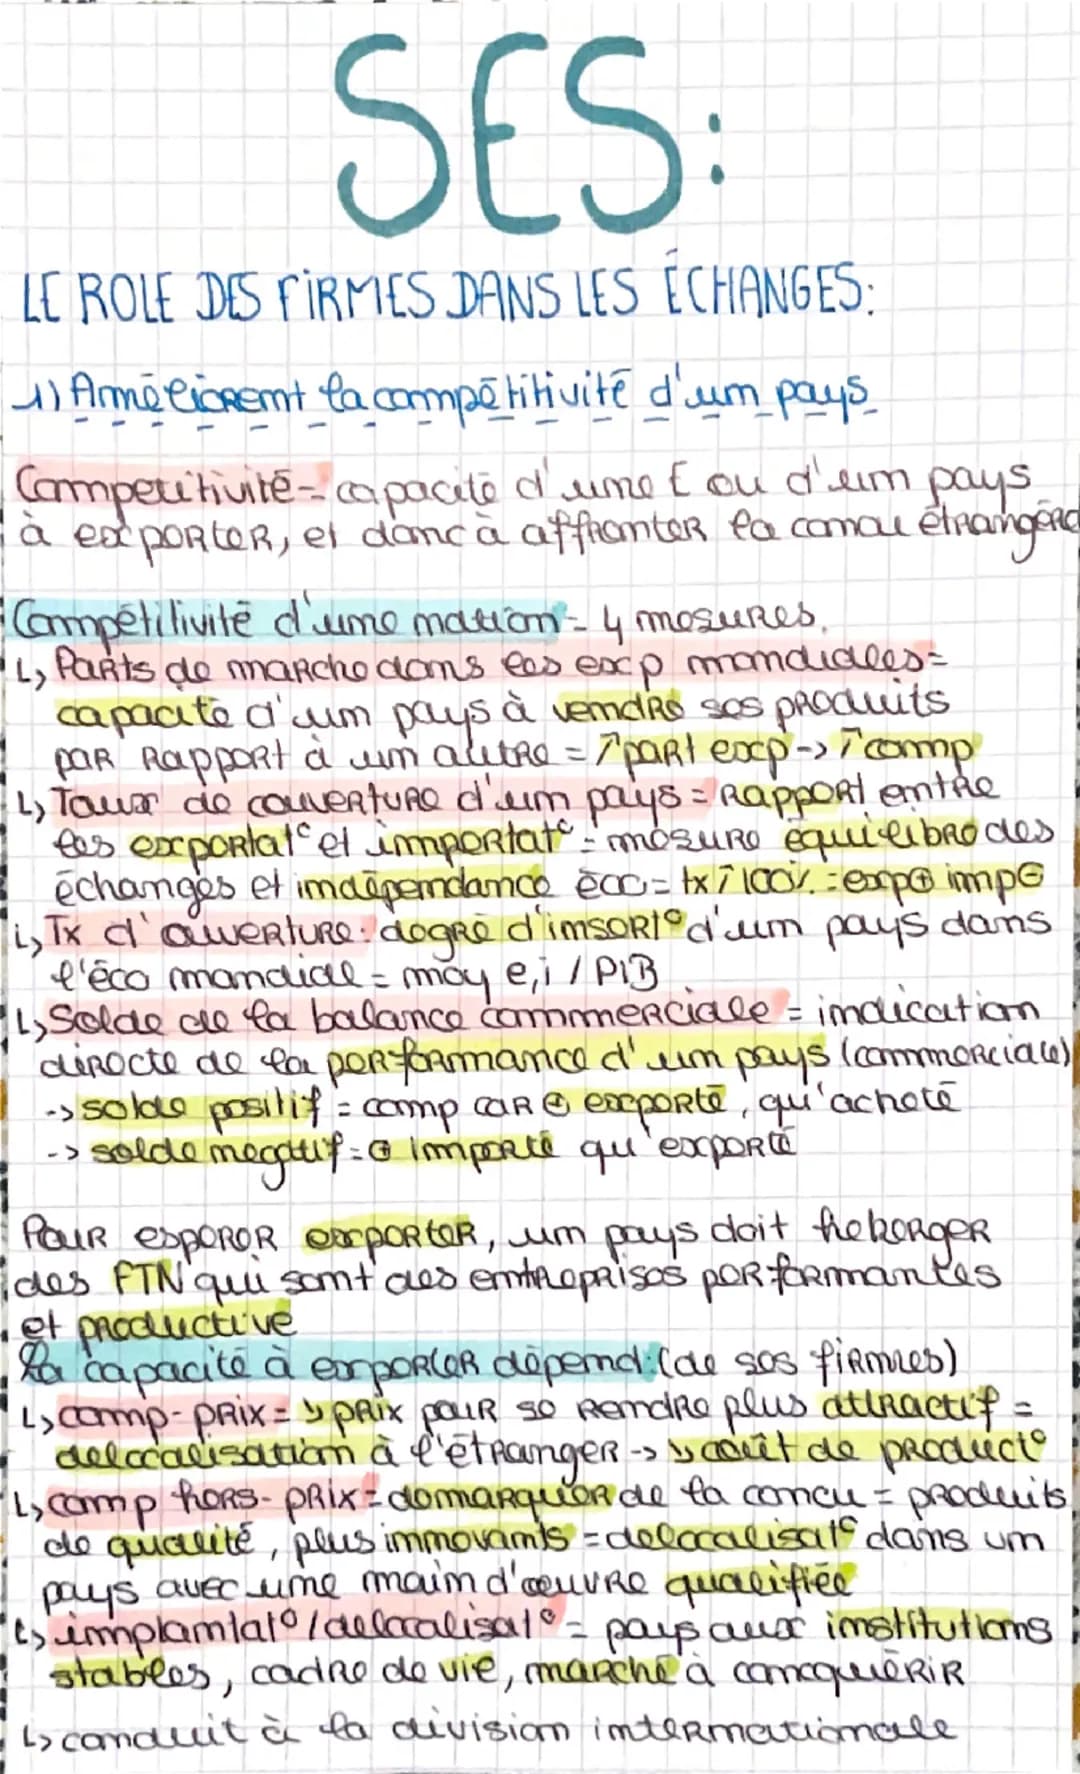 SES:
LE ROLE DES FIRMES DANS LES ÉCHANGES:
1) Améliorent la compétitivité d'un pays
Competitivité = capacité d'une E ou d'un pays
à exporter, et donc à affronter la concu étrangère
Compétitivité d'une nation = 4 mesures.
↳ Parts de marche dans les exp mondiales =
capacité d'un pays à vendre ses produits
par rapport à un autre = ↗ part exp -> ↗ comp
↳ Taux de couverture d'un pays = rapport entre
les exportat° et importat° = mesure équilibre des
échanges et indépendance éco = tx ↗ 100% = exp ⊕ imp ⊖
↳ Tx d'ouverture: degré d'insert° d'un pays dans
l'éco mondiale = moy e,i / PIB
↳ Solde de la balance commerciale = indication
directe de la performance d'un pays (commerciale)
-> solde positif = comp car ⊕ exporté, qu'acheté
-> solde negatif = ⊕ importé qu'exporté
Pour esperer exporter, un pays doit heberger
des FTN qui sont des entreprises performantes
et productive
La capacité à exporter dépend: (de ses firmes)
↳ comp-prix = ↘ prix pour se rendre plus attractif =
delocalisation à l'étranger -> ↘ coût de product°
↳ comp hors-prix = demarquer de la concu = produits
de qualité, plus innovants = delocalisat° dans un
pays avec une main d'œuvre qualifiée
↳ implantat° / delocalisat° = pays aux institutions
stables, cadre de vie, marché à concquérir
↳ conduit à la division internationale